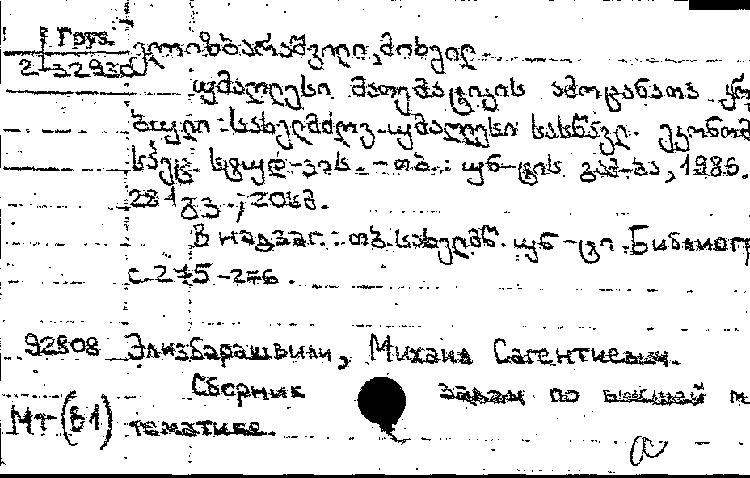 Груз.
2-32930 ელიზბარაშვილი, მიხეილ.
უმაღლესი მათემატიკის ამოცანათა
ბული : სახელმძღვ. უმაღლესი სასწავლ. ეკონომ
სპეც. სტუდ-ვის. - თბ. : უნ-ტის გამ-ბა, 1986.
281 გვ. ; 20 სმ.
В надзаг. : თბ. სახელმწ. უნ-ტი. Библиогр
с. 275-276.
92808 Элизбарашвили, Михаил
Сборник задач по высшей м
Мт (51) тематике.